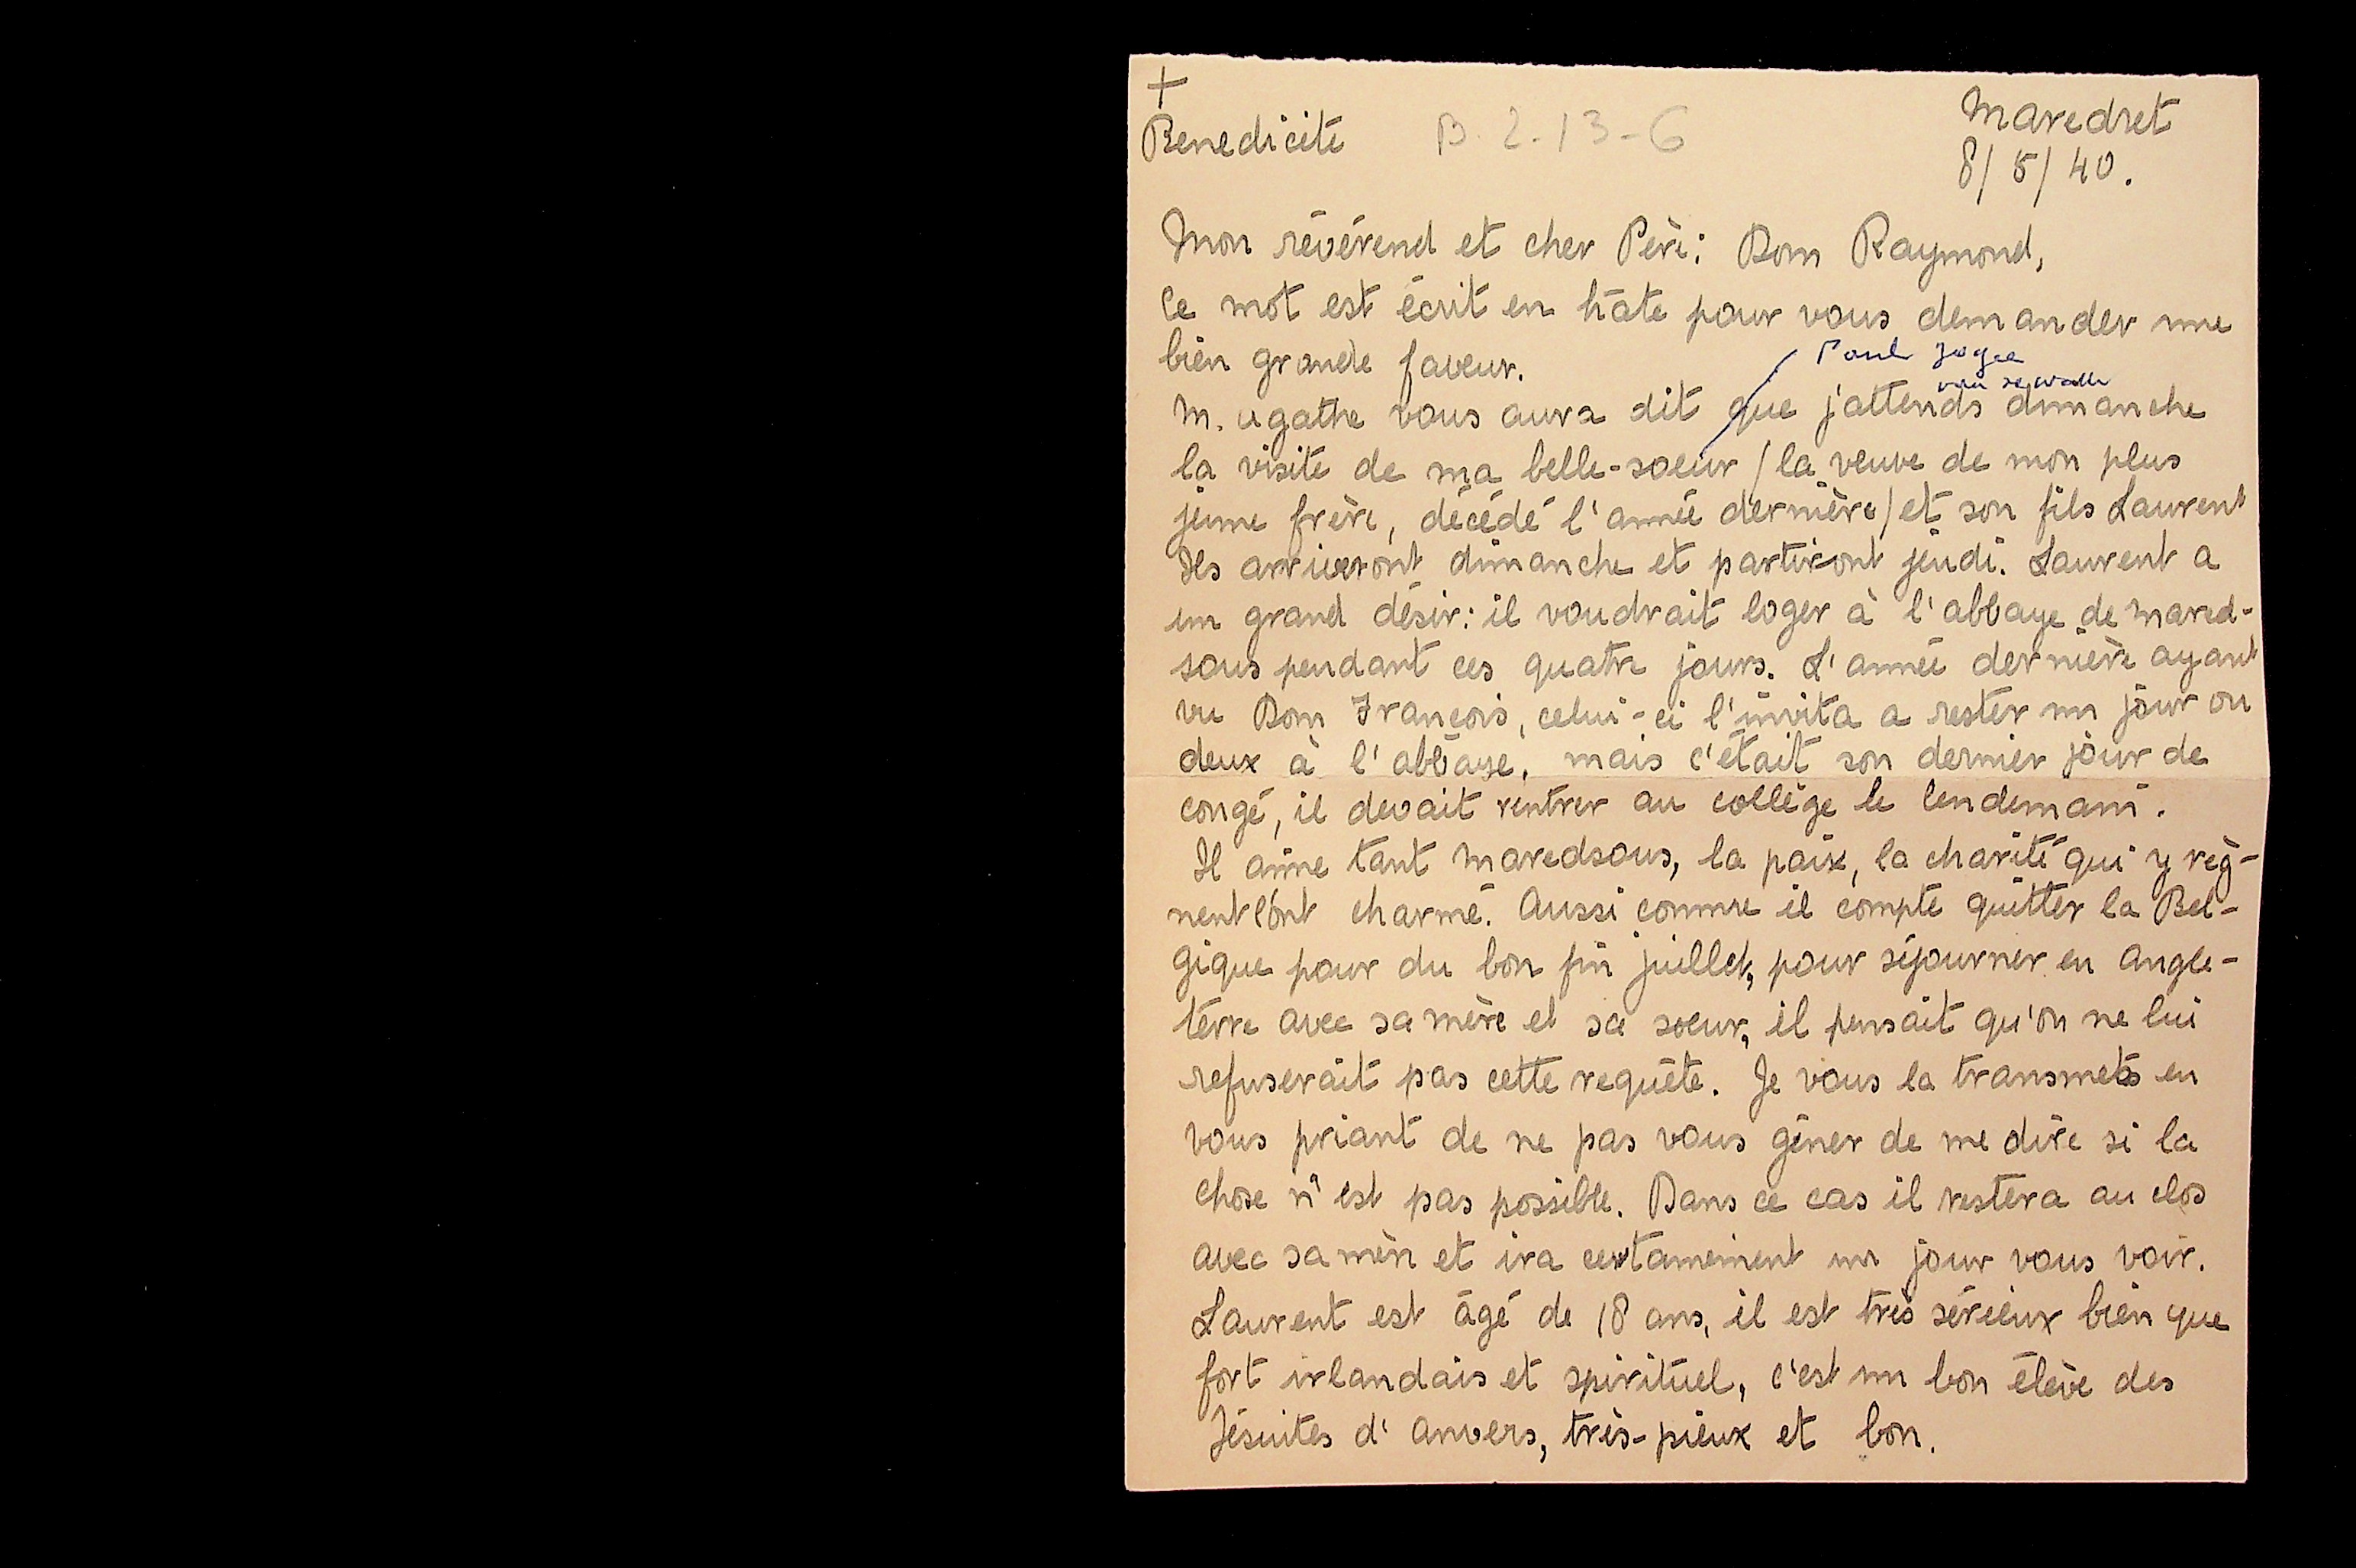 +
Benedicite B. 2-13-6 Maredret
8/5/40.
Mon révérend et cher Père: Dom Raymond,
Ce mot est écrit en hâte pour vous demander une
bien grande faveur.
Paul
M. Agathe vous aura dit que j'attends dimanche
la visite de ma belle-soeur /la veuve de mon plus
jeune frère, décédé l'année dernière/ et son fils Laurent
Ils arriveront dimanche et partiront jeudi. Laurent a
un grand désir: il voudrait loger à l'abbaye de Mared-
sous pendant ces quatre jours. L'année dernière ayant
vu Dom François, celui-ci l'invita a rester un jour ou
deux à l'abbaye, mais c'était son dernier jour de
congé, il devait rentrer au collège le lendemain.
Il aime tant Maredsous, la paix, la charité qui y règ-
nent l'ont charmé. Aussi comme il compte quitter la Bel-
gique pour du bon fin juillet, pour séjourner en Angle-
terre avec sa mère et sa soeur, il pensait qu'on ne lui
refuserait pas cette requête. Je vous la transmets en
vous priant de ne pas vous gêner de me dire si la
chose n'est pas possible. Dans ce cas il restera au clos
avec sa mère et ira certainement un jour vous voir.
Laurent est âgé de 18 ans, il est très sérieux bien que
fort irlandais et spirituel, c'est un bon élève des
Jésuites d'Anvers, très-pieux et bon.